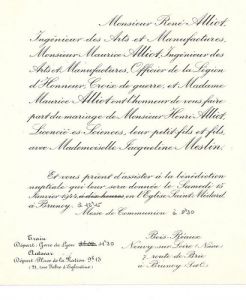 Monsieur René Alliot,
Ingénieur des Arts et Manufactures,
Monsieur Maurice Alliot, Ingénieur des
Arts et Manufactures, Officier de la Légion
d'Honneur, Croix de guerre, et Madame
Maurice Alliot ont l'honneur de vous faire
part du mariage de Monsieur Henri Alliot,
Licencié ès Sciences, leur petit-fils et fils,
avec Mademoiselle Jacqueline Meslin.
Et vous prient d'assister à la bénédiction
nuptiale qui leur sera donnée le Samedi 15
Janvier en l'Eglise Saint-Médard
à Brunoy
Messe de Communion à 8h30
Train
Départ: Gare de Lyon
Autocar
Départ: Place de la Nation
Bois-Réaux
Neuvy-sur-Loire (Nièvre)
7, route de Brie
à Brunoy (S.&O.)